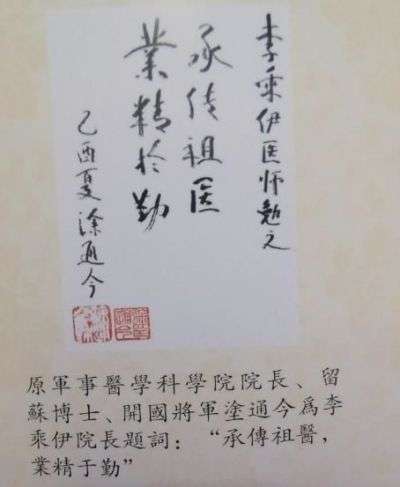 李乘伊医师勉之
承传祖医
業精於勤
己酉夏涂通今
原軍事醫學科學院院長、留
蘇博士、開國將軍塗通今爲李
乘伊院長題詞：“承傳祖醫，
業精于勤”